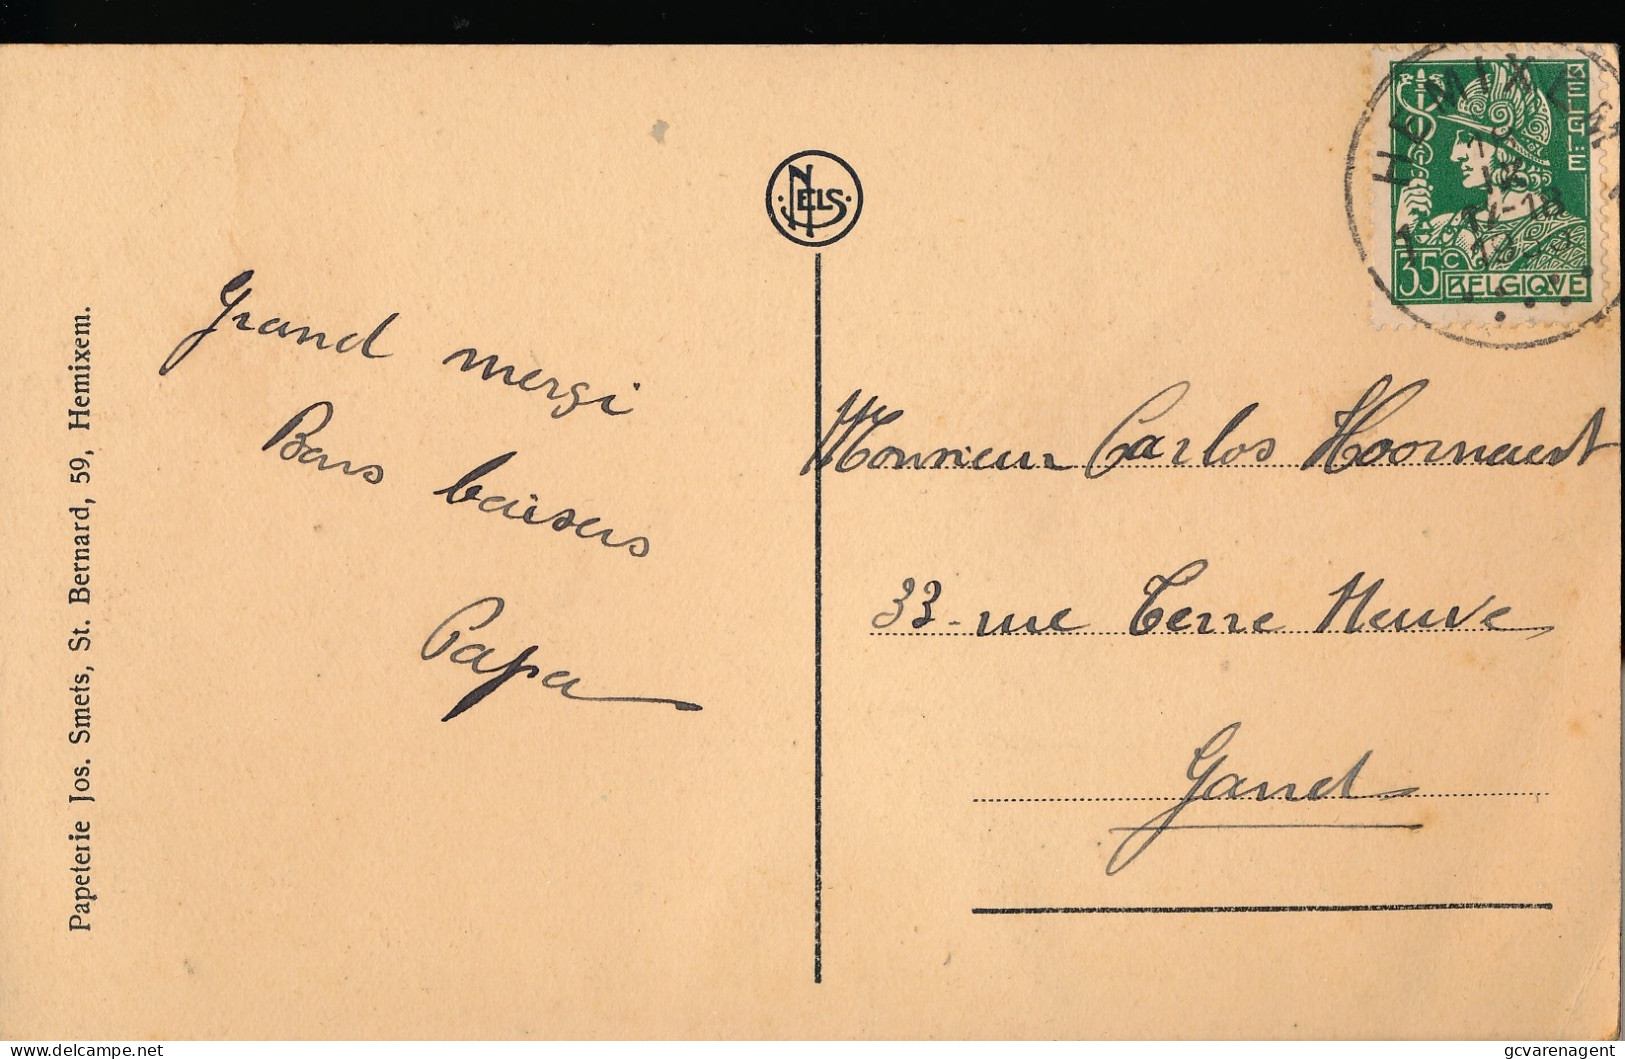 Papeterie Jos. Smets, St. Bernard, 59, Hemixem.
NELS
Grand mersi
Bons baisers
Papa
HEMIXEM
BELGIE
35 C BELGIQVE
Monsieur Carlos Hoornaert
33 - rue Terre Neuve
Gand
delcampe.net
gcvarenagent